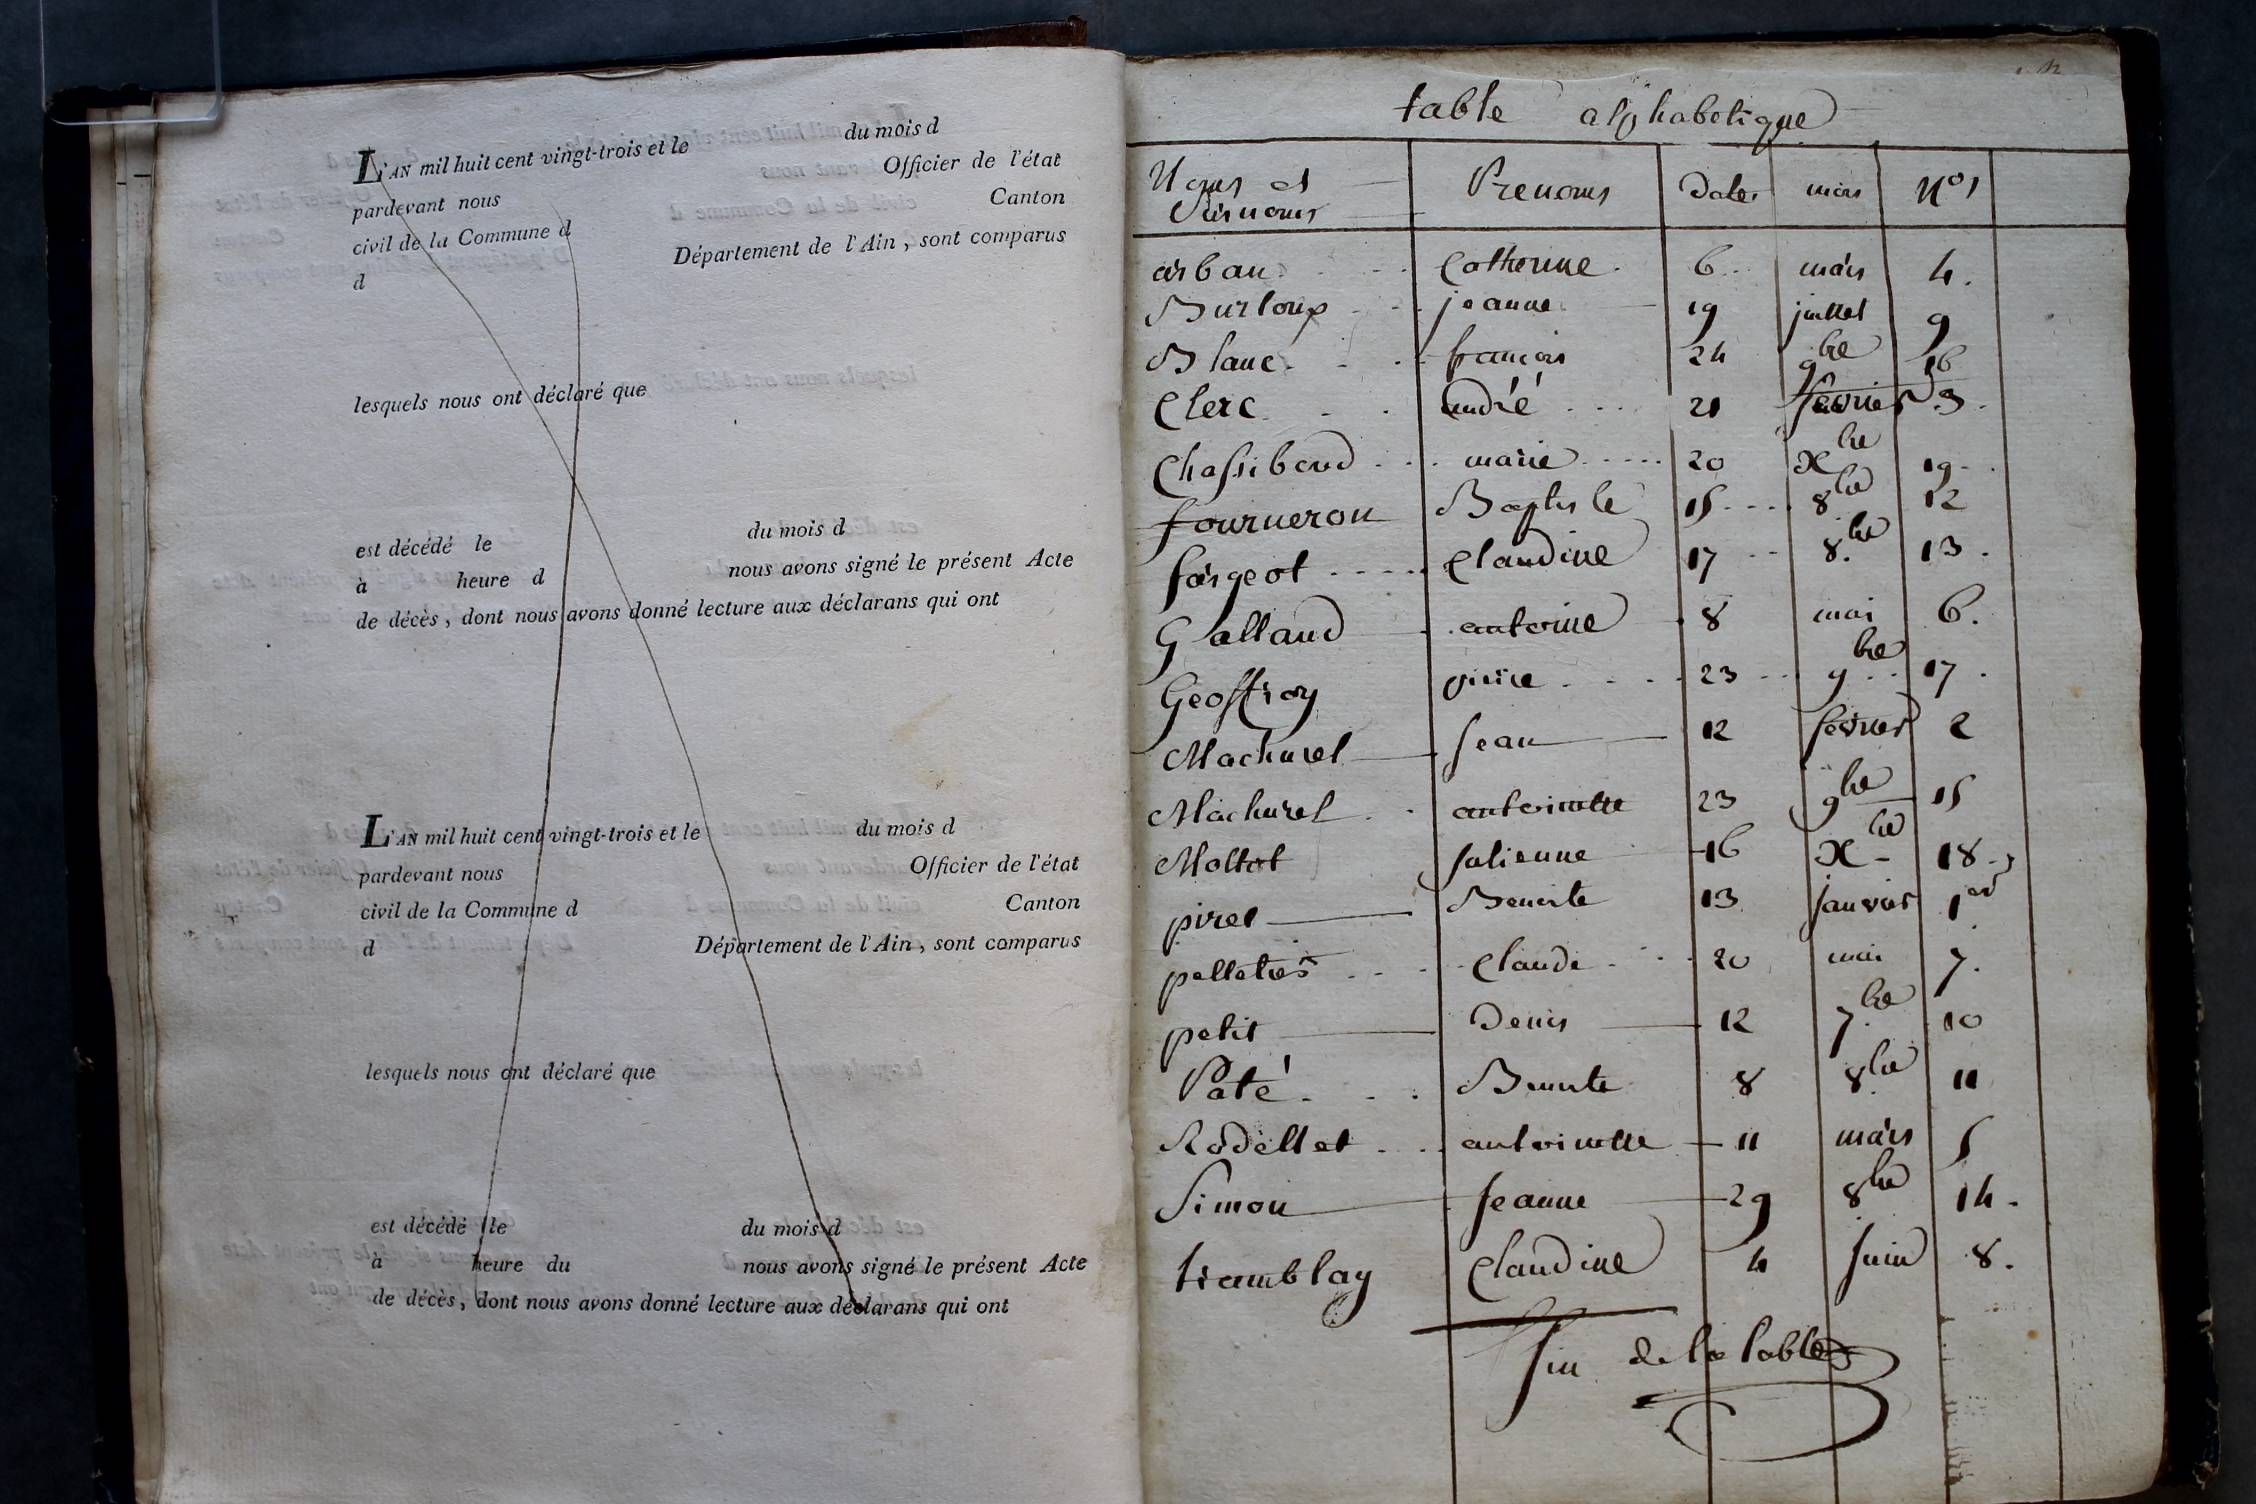 L'AN mil huit cent vingt-trois et le du mois d
pardevant nous Officier de l'état
civil de la Commune d Canton
d Département de l'Ain, sont comparus
lesquels nous ont déclaré que
est décédé le du mois d
à heure d nous avons signé le présent Acte
de décès, dont nous avons donné lecture aux déclarans qui ont
L'AN mil huit cent vingt-trois et le du mois d
pardevant nous Officier de l'état
civil de la Commune d Canton
d Département de l'Ain, sont comparus
lesquels nous ont déclaré que
est décédé le du mois d
à heure du nous avons signé le présent Acte
de décès, dont nous avons donné lecture aux déclarans qui ont
table alphabetique
Noms et Prenoms Dates mois Nos
Surnoms
arban Catherine 6 mars 4.
Burloup jeanne 19 juillet 9
Blanc françois 24 9bre 16
Clerc andré 21 février 3.
Chassiboud marie 20 xbre 19
fourneron Baptiste 15 8bre 12
fargeot Claudine 17 8.bre 13.
Galland antoine 8 mai 6.
Geoffroy pierre 23 9bre 17.
Machurel Jean 12 février 2
Machurel antoinette 23 9bre 15
Moltot Julienne 16 xbre 18
piret Benoite 13 janvier 1er
pelletier Claude 20 mai 7.
petit Denis 12 7.bre 10
Paté Benoite 8 8bre 11
Rodellet antoinette 11 mars 5
Simon Jeanne 29 8bre 14
tramblay Claudine 4 Juin 8.
fin de la table